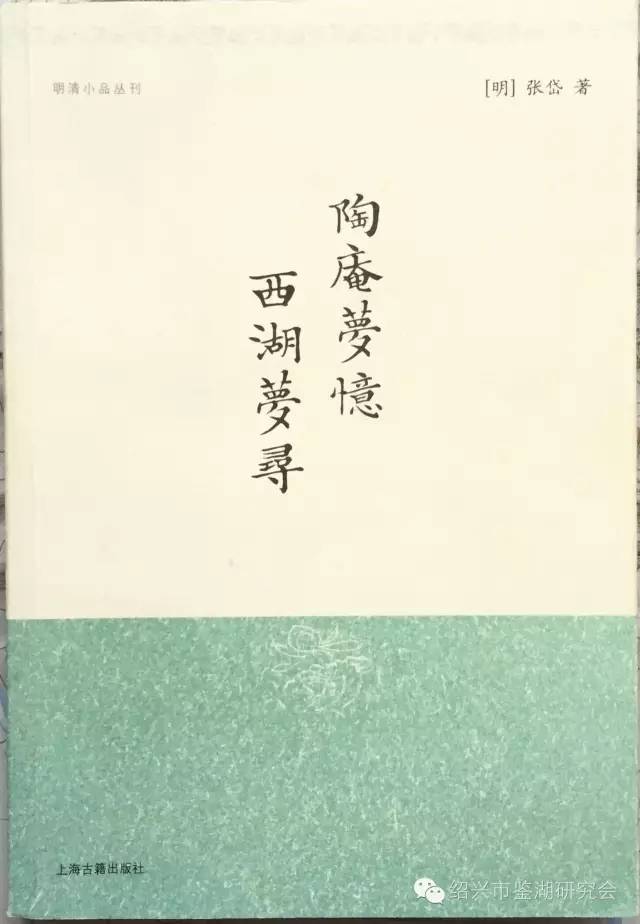 明清小品丛刊
[明] 张岱 著
陶庵夢憶
西湖夢尋
上海古籍出版社
绍兴市鉴湖研究会